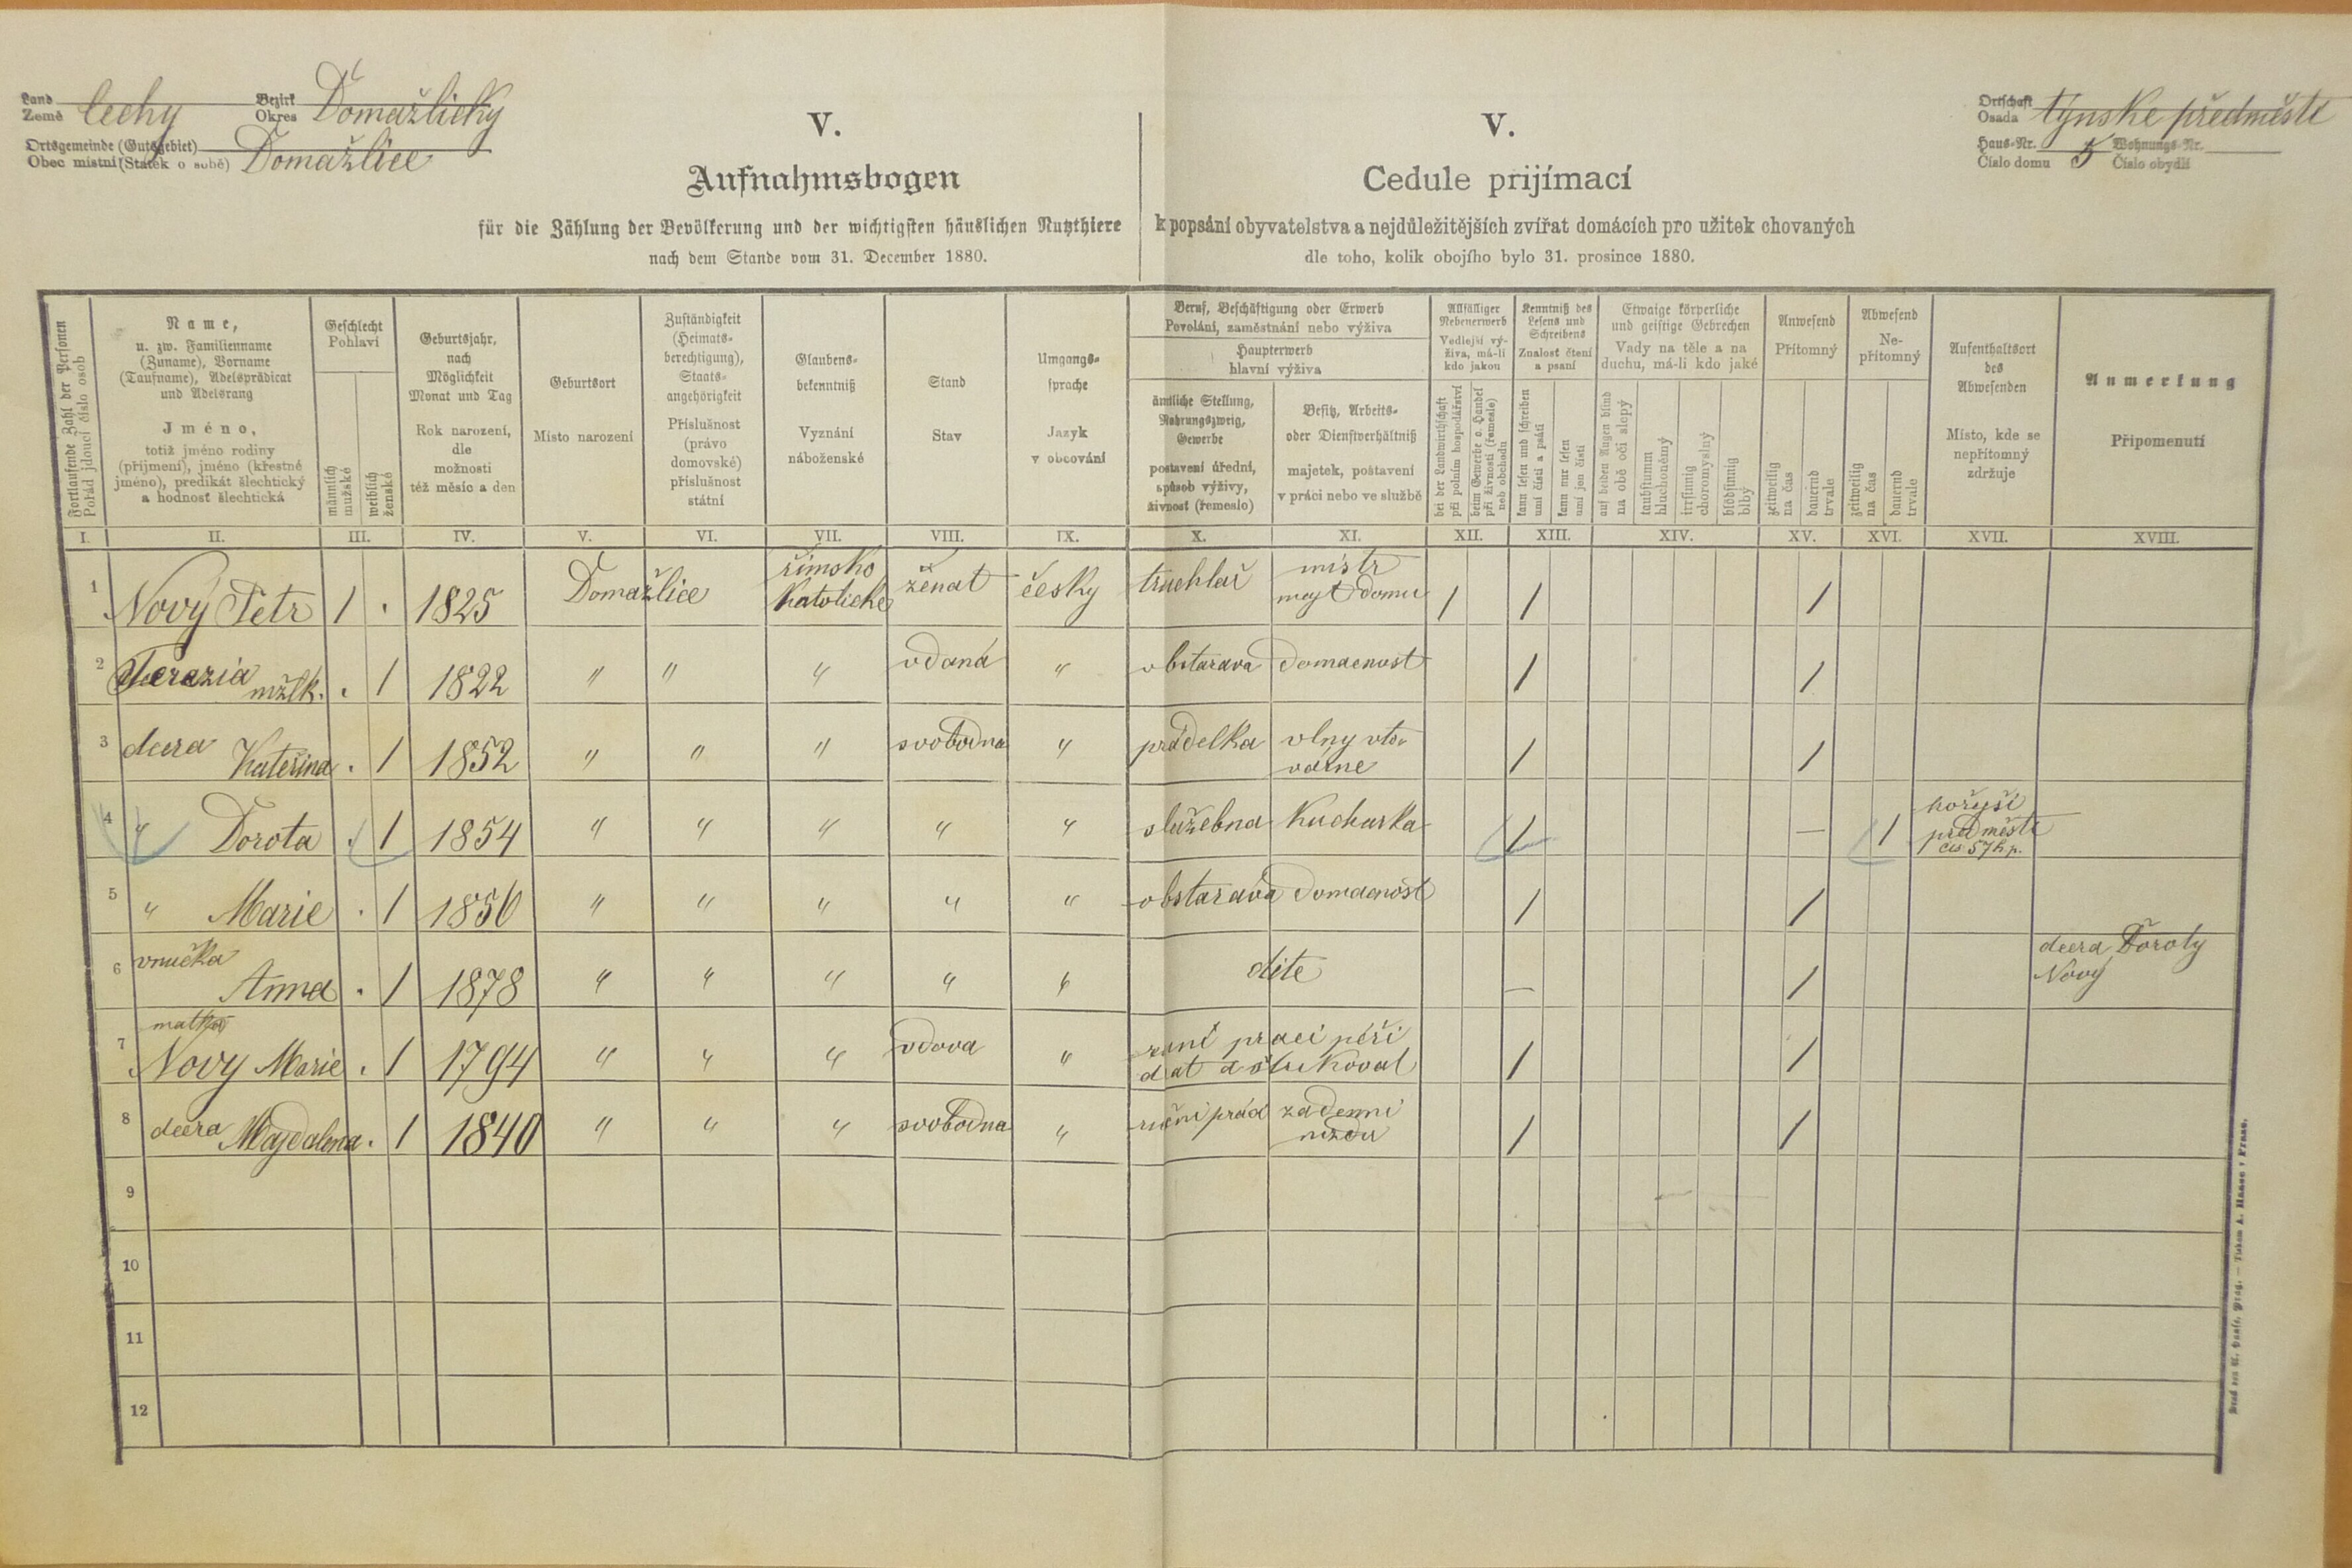 Land Země Čechy Bezirk Okres Domažlický
Ortsgemeinde (Gutsgebiet) Obec místní (Statek o sobě) Domažlice
V.
Aufnahmsbogen
für die Zählung der Bevölkerung und der wichtigsten häuslichen Nutzthiere
nach dem Stande vom 31. December 1880.
V.
Cedule přijímací
k popsání obyvatelstva a nejdůležitějších zvířat domácích pro užitek chovaných
dle toho, kolik obojího bylo 31. prosince 1880.
Ortschaft Osada týnské předměstí
Haus-Nr. Číslo domu 5 Wohnungs-Nr. Číslo obydlí
Fortlaufende Zahl der Personen
Pořád jdoucí číslo osob
Name,
u. zw. Familienname
(Zuname), Vorname
(Taufname), Adelsprädicat
und Adelsrang
Jméno,
totiž jméno rodiny
(příjmení), jméno (křestné
jméno), predikát šlechtický
a hodnosť šlechtická
Geschlecht
Pohlaví
männlich
mužské
weiblich
ženské
Geburtsjahr,
nach
Möglichkeit
Monat und Tag
Rok narození,
dle
možnosti
též měsíc a den
Geburtsort
Místo narození
Zuständigkeit
(Heimats-
berechtigung),
Staats-
angehörigkeit
Příslušnost
(právo
domovské)
příslušnost
státní
Glaubens-
bekenntniß
Vyznání
náboženské
Stand
Stav
Umgangs-
sprache
Jazyk
v obcování
Beruf, Beschäftigung oder Erwerb
Povolání, zaměstnání nebo výživa
Haupterwerb
hlavní výživa
ämtliche Stellung,
Nahrungszweig,
Gewerbe
postavení úřední,
spůsob výživy,
živnosť (řemeslo)
Besitz, Arbeits-
oder Dienstverhältniß
majetek, postavení
v práci nebo ve službě
Allfälliger
Nebenerwerb
Vedlejší vý-
živa, má-li
kdo jakou
bei der Landwirthschaft
při polním hospodářství
beim Gewerbe o. Handel
při živnosti (řemesle)
neb obchodu
Kenntniß des
Lesens und
Schreibens
Znalosť čtení
a psaní
kann lesen und schreiben
umí čísti a psáti
kann nur lesen
umí jen čísti
Etwaige körperliche
und geistige Gebrechen
Vady na těle a na
duchu, má-li kdo jaké
auf beiden Augen blind
na obě oči slepý
taubstumm
hluchoněmý
irrsinnig
choromyslný
blödsinnig
blbý
Anwesend
Přítomný
zeitweilig
na čas
dauernd
trvale
Abwesend
Ne-
přítomný
zeitweilig
na čas
dauernd
trvale
Aufenthaltsort
des
Abwesenden
Místo, kde se
nepřítomný
zdržuje
Anmerkung
Připomenutí
I. II. III. IV. V. VI. VII. VIII. IX. X. XI. XII. XIII. XIV. XV. XVI. XVII. XVIII.
1 Nový Petr 1 . 1825 Domažlice římsko katolické ženat česky truchlař mistr majt domu / / /
2 Terezia mžlk. . 1 1822 " " " vdaná " obstarává domacnost / /
3 dcera Kateřina . 1 1852 " " " svobodna " přádelka vlny vto- varne / /
4 " Dorota . 1 1854 " " " " " služebna kucharka / — 1 hořejší předměstí čis 57 h.p.
5 " Marie . 1 1856 " " " " " obstarává domacnost / /
6 vnučka Anna . 1 1878 " " " " " dite — / dcera Doroty Nový
7 matka Nový Marie . 1 1794 " " " vdova " runí praci péří drat a štukoval / /
8 dcera Majdalena . 1 1840 " " " svobodna " ruční prací zadenní mzdu / /
9
10
11
12